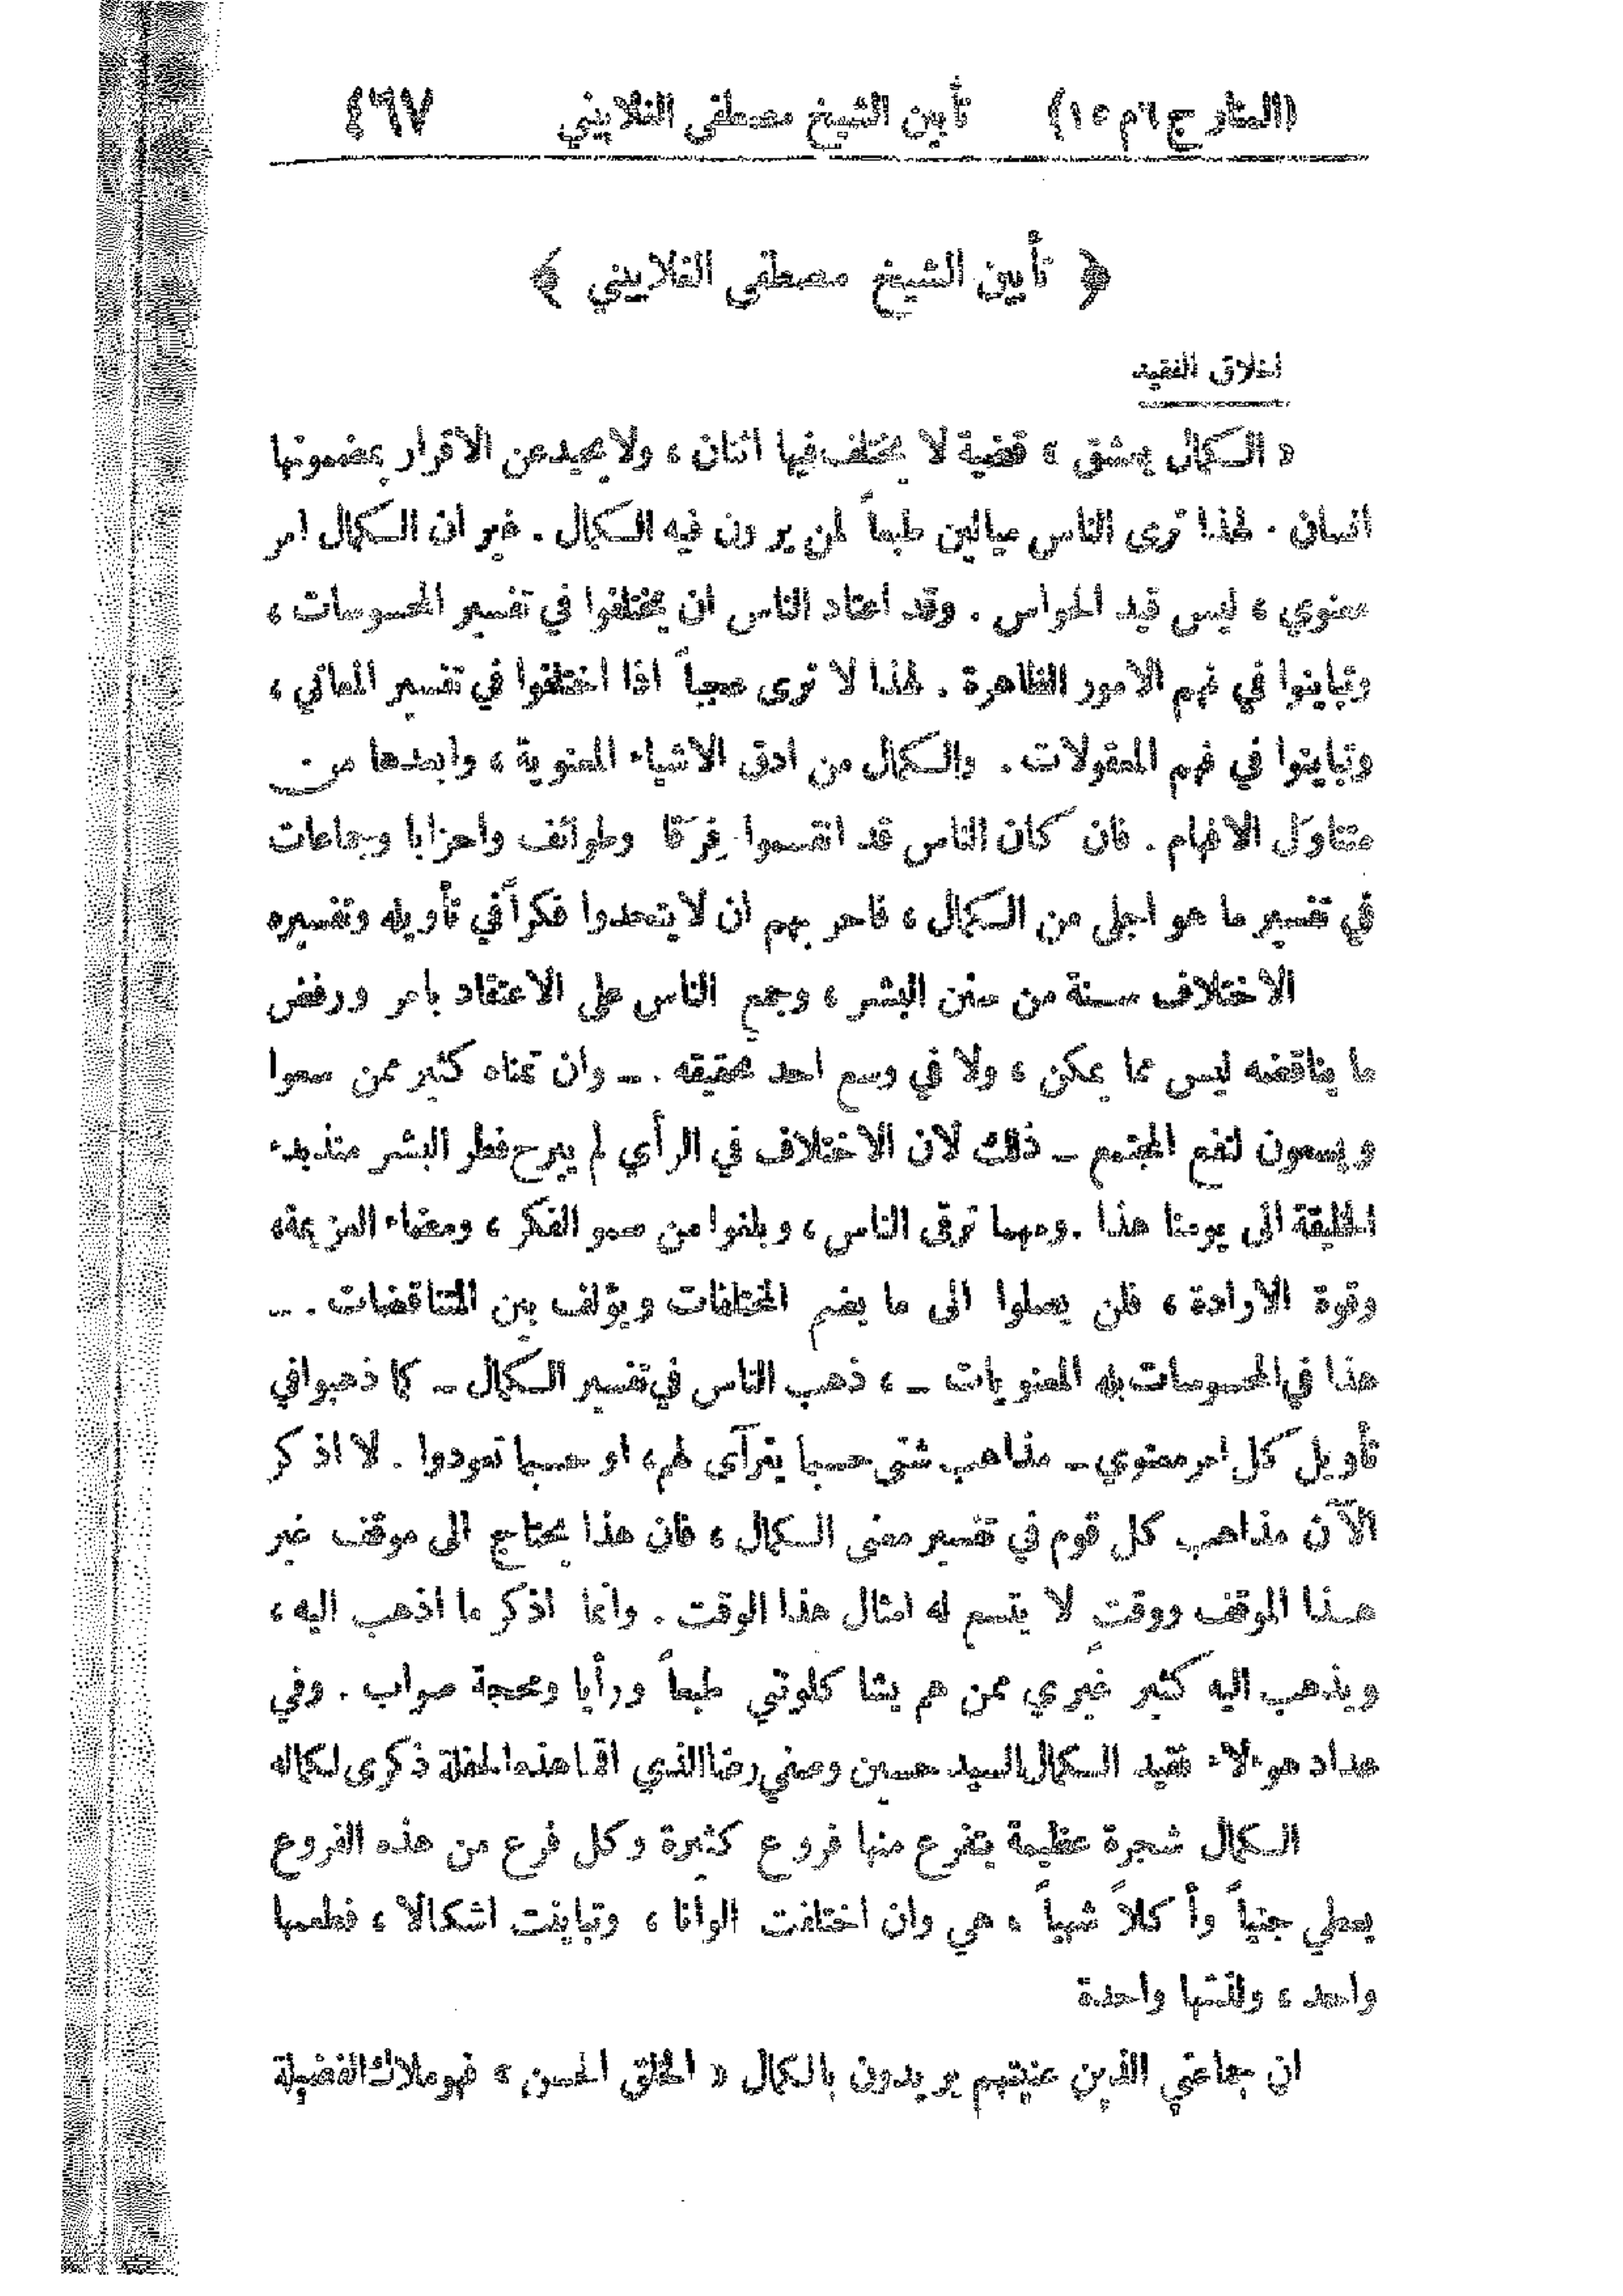 (المنار ج ٦ م ١٥) تأبين الشيخ مصطفى الغلاييني ٤٦٧
﴿ تأبين الشيخ مصطفى الغلاييني ﴾
اخلاق الفقيد
« الكمال يعشق » قضية لا يختلف فيها اثنان ، ولا يحيد عن الاقرار بمضمونها
انسان . لهذا ترى الناس ميالين طبعاً لمن يرون فيه الكمال . غير ان الكمال امر
معنوي ، ليس قيد الحواس . وقد اعتاد الناس ان يختلفوا في تفسير المحسوسات ،
وتباينوا في فهم الامور الظاهرة . لهذا لا ترى عجباً اذا اختلفوا في تفسير المعاني ،
وتباينوا في فهم المعقولات . والكمال من ادق الاشياء المعنوية ، وابعدها من
متناوَل الافهام . فان كان الناس قد انقسموا فِرَقا وطوائف واحزابا وجماعات
في تفسير ما هو اجلى من الكمال ، فاحر بهم ان لا يتحدوا فكراً في تأويله وتفسيره
الاختلاف سنة من سنن البشر ، وجمع الناس على الاعتقاد بامر ورفض
ما يناقضه ليس مما يمكن ، ولا في وسع احد تحقيقه . – وان تمناه كثير ممن سعوا
ويسعون لنفع المجتمع – ذلك لان الاختلاف في الرأي لم يبرح فطر البشر منذ بدء
الخليقة الى يومنا هذا . ومهما ترقى الناس ، وبلغوا من سمو الفكر ، ومضاء العزيمة ،
وقوة الارادة ، فلن يصلوا الى ما يضم المختلفات ويؤلف بين المتناقضات . –
هذا في المحسوسات بله المعنويات – ، ذهب الناس في تفسير الكمال – كما ذهبوا في
تأويل كل امر معنوي – مذاهب شتى حسبما يترآى لهم ، او حسبما تعودوا . لا اذكر
الآن مذاهب كل قوم في تفسير معنى الكمال ، فان هذا يحتاج الى موقف غير
هذا الموقف ووقت لا يتسع له امثال هذا الوقت . وانما اذكر ما اذهب اليه ،
ويذهب اليه كثير غيري ممن هم يشاكلوني طبعاً ورأيا ومحجة صواب . وفي
عداد هؤلاء فقيد الكمال السيد حسين وصفي رضا الذي اقمنا هذه الحفلة ذكرى لكماله
الكمال شجرة عظيمة يتفرع منها فروع كثيرة وكل فرع من هذه الفروع
يعطي جنياً وأكلاً شهياً ، هي وان اختلفت الوانا ، وتباينت اشكالاً ، فطعمها
واحد ، ولذتها واحدة
ان جماعتي الذين عنيتهم يريدون بالكمال « الخلق الحسن » فهو ملاك الفضيلة